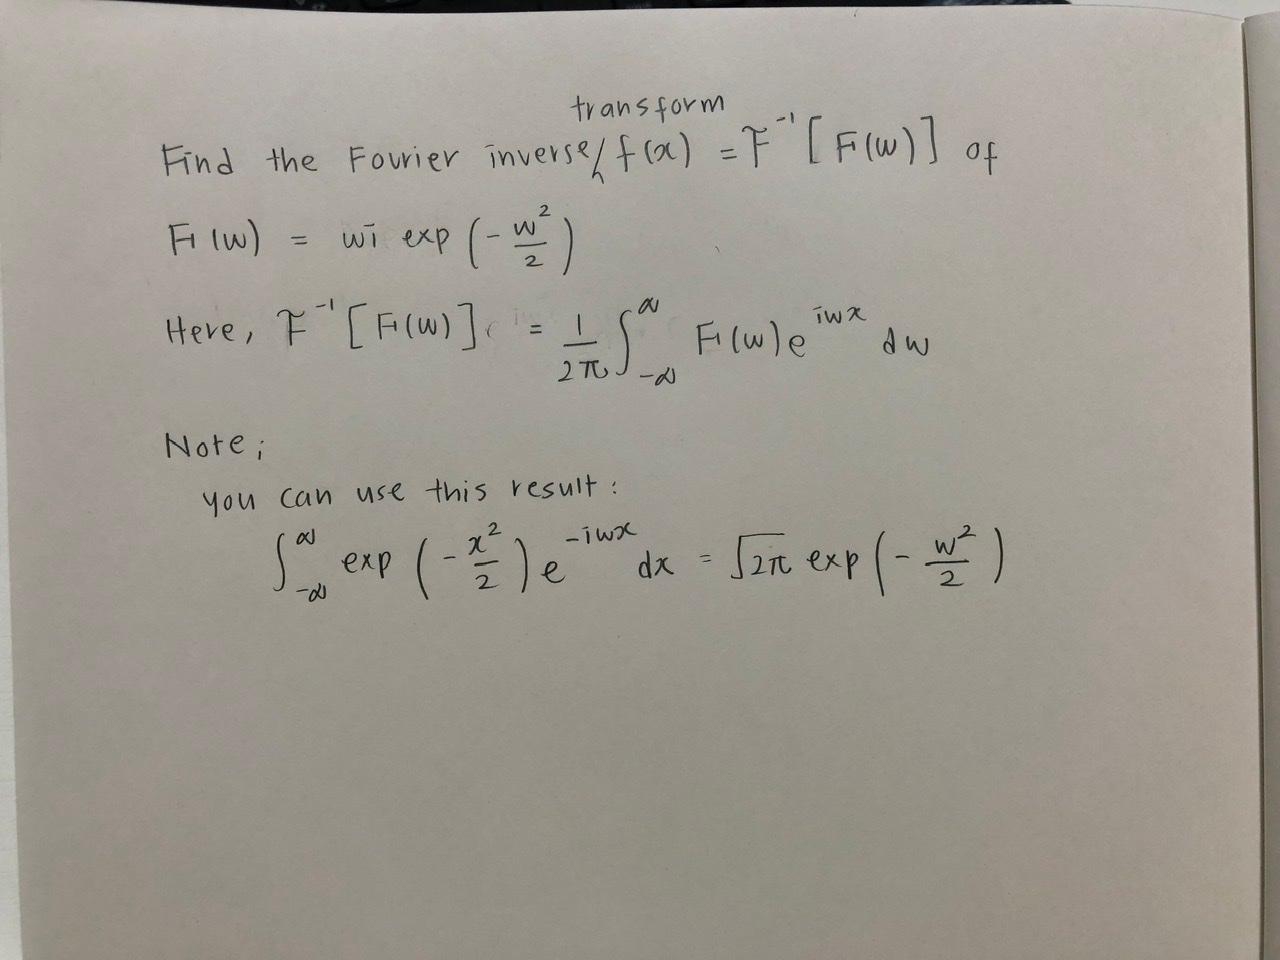 transform
Find the Fourier inverse f(x) = F⁻¹[F(w)] of
F(w) = wi exp(-w²/2)
Here, F⁻¹[F(w)] = 1/2π ∫_{-∞}^{∞} F(w)e^{iwx} dw
Note;
you can use this result:
∫_{-∞}^{∞} exp(-x²/2)e^{-iwx} dx = √2π exp(-w²/2)